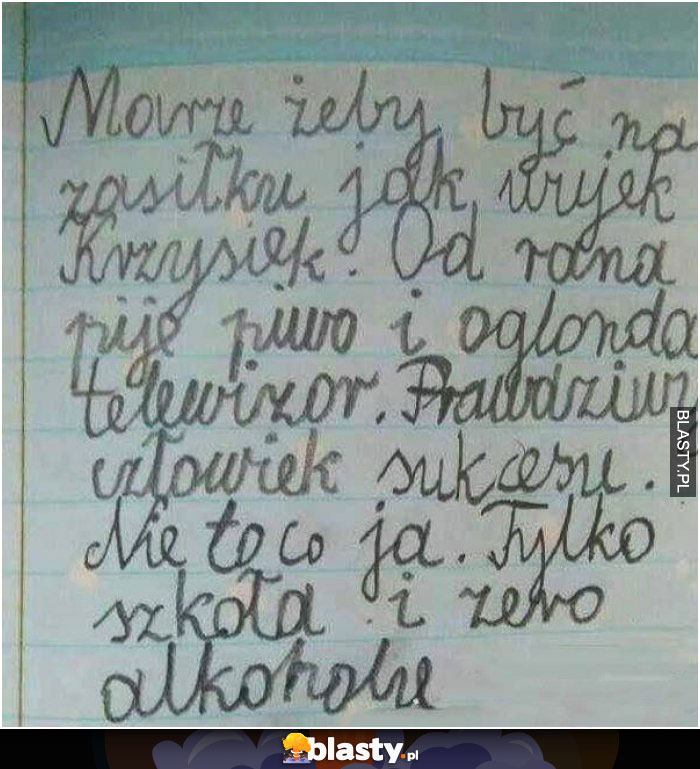 Marze żeby być na
zasiłku jak wujek
Krzysiek. Od rana
pije piwo i oglonda
telewizor. Prawdziwy
człowiek sukcesu.
Nie to co ja. Tylko
szkoła i zero
alkoholu
BLASTY.PL
blasty.pl